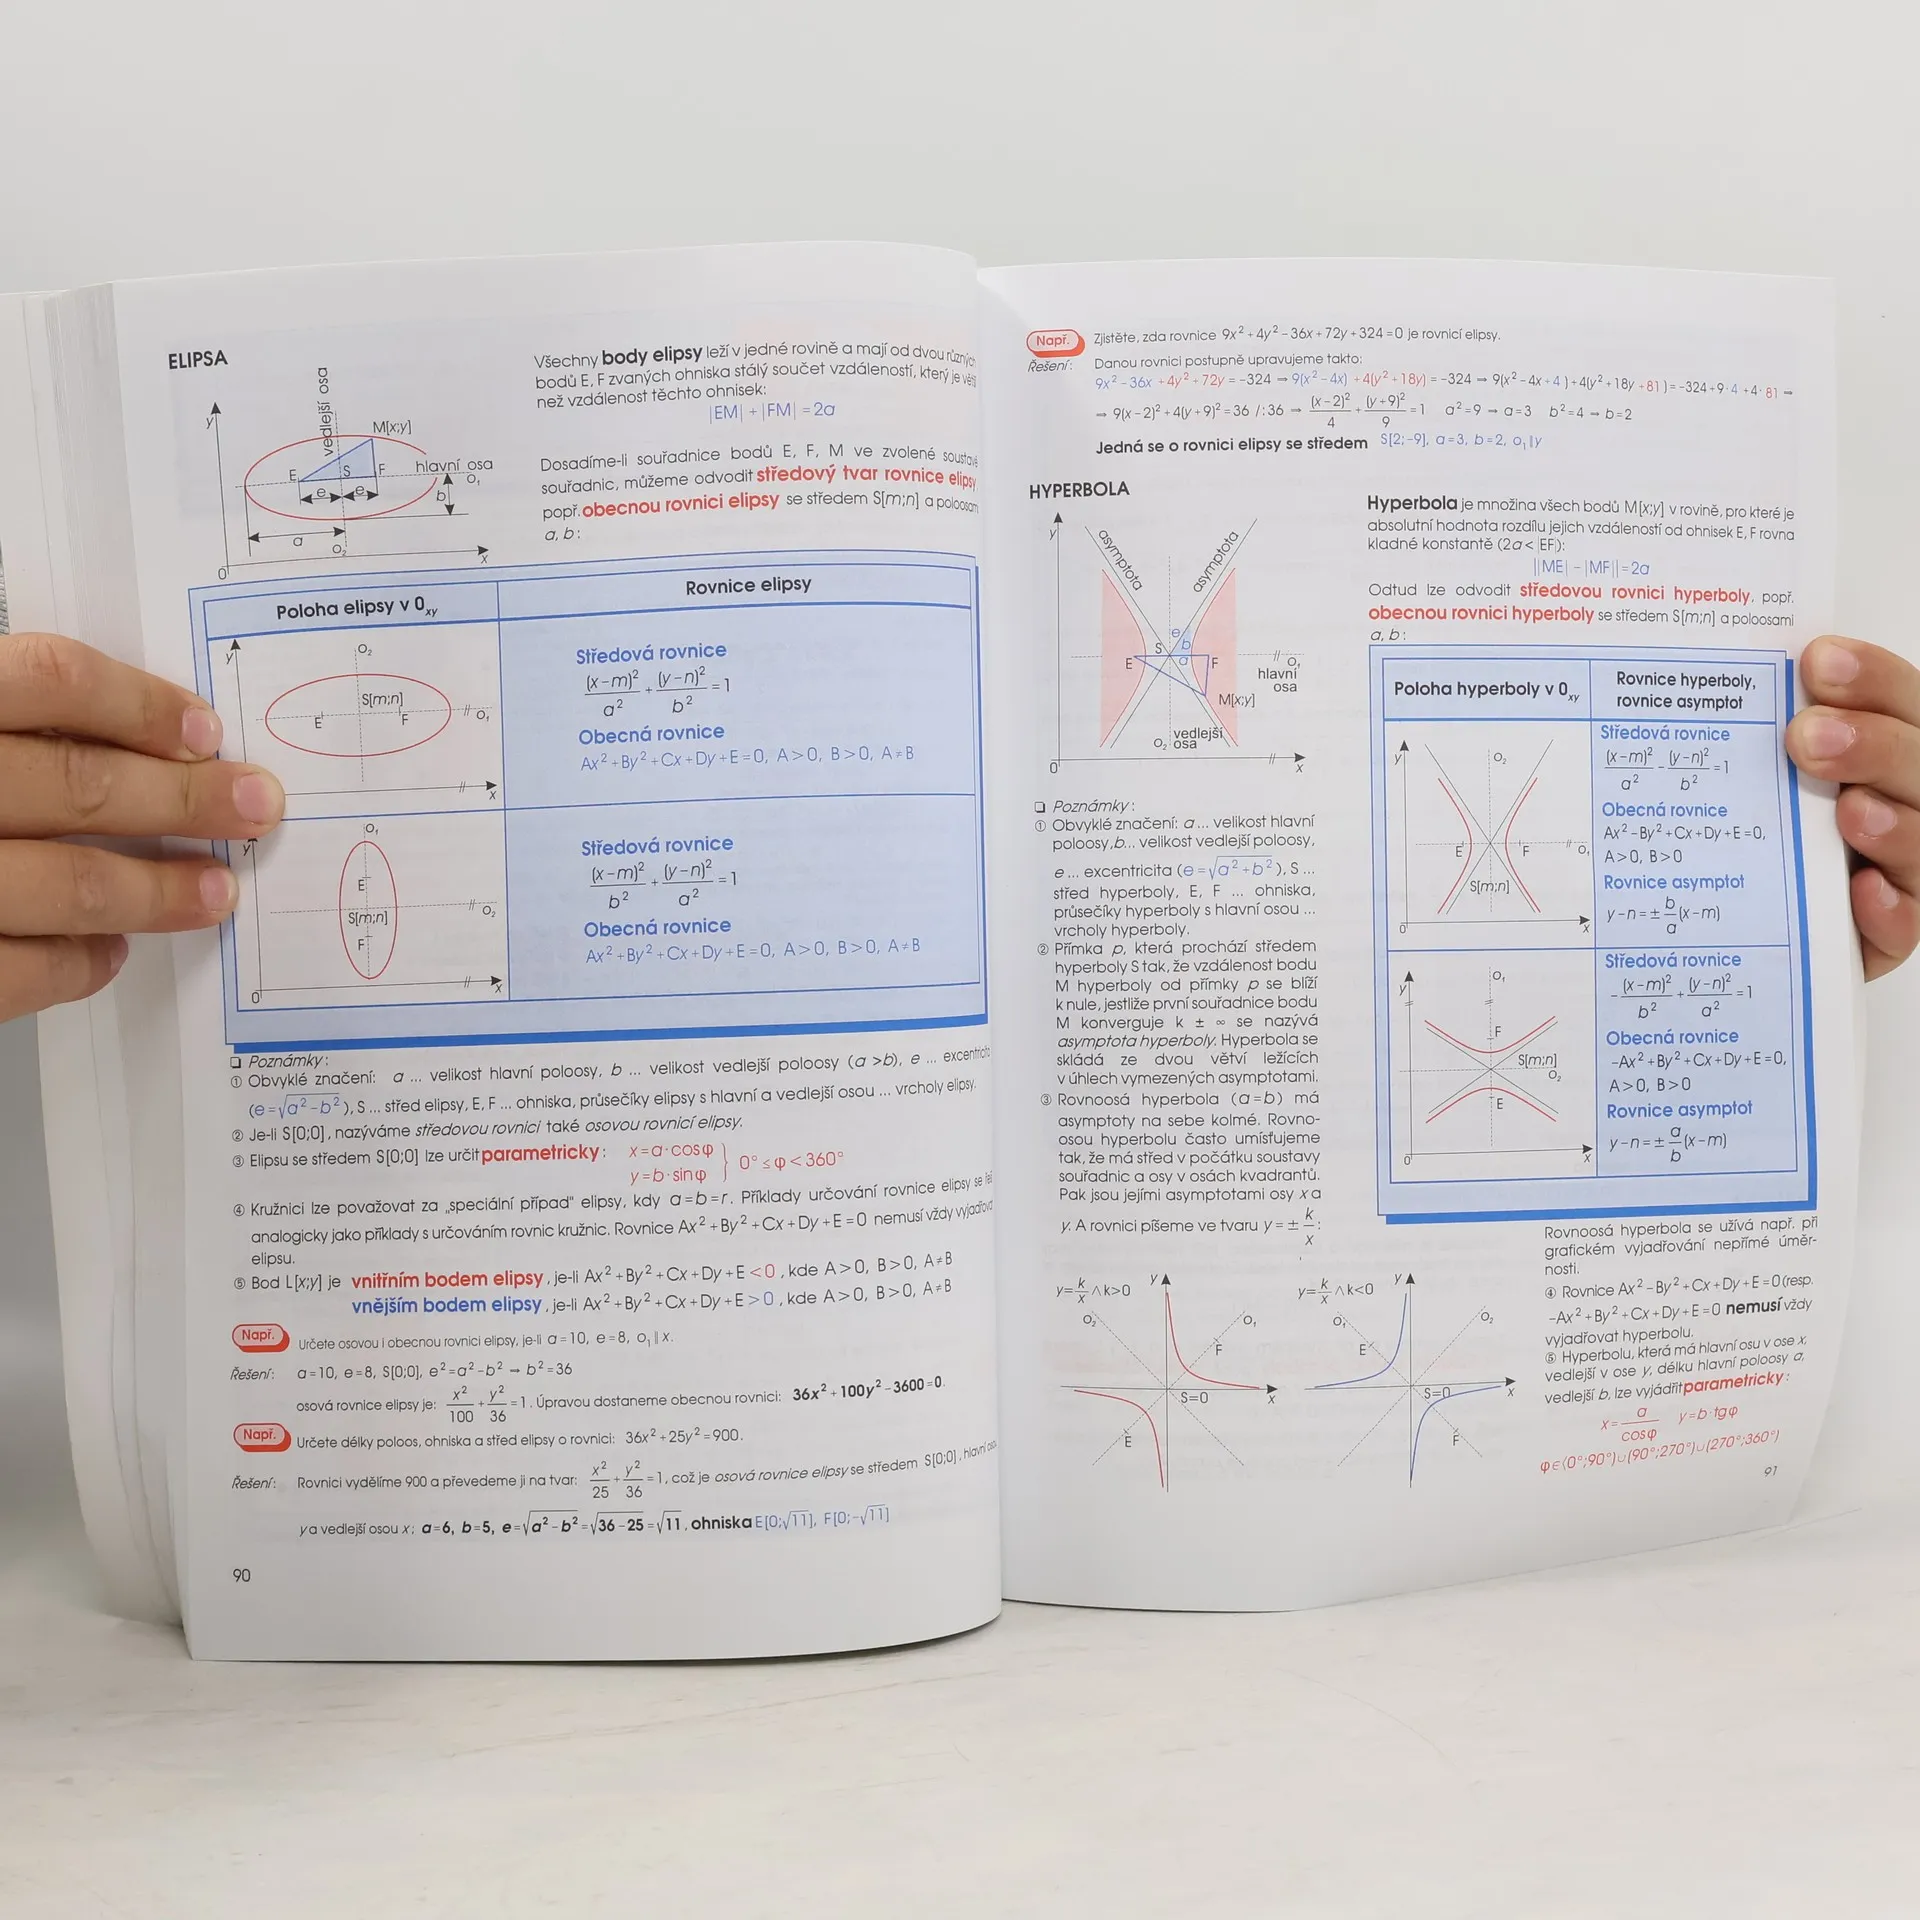 ELIPSA
y
vedlejší osa
M[x;y]
E
S
F
hlavní osa
o₁
e
e
b
a
o₂
x
0
Všechny body elipsy leží v jedné rovině a mají od dvou různých
bodů E, F zvaných ohniska stálý součet vzdáleností, který je větší
než vzdálenost těchto ohnisek:
|EM| + |FM| = 2a
Dosadíme-li souřadnice bodů E, F, M ve zvolené soustavě
souřadnic, můžeme odvodit středový tvar rovnice elipsy,
popř. obecnou rovnici elipsy se středem S[m;n] a poloosami
a, b:
Poloha elipsy v 0xy
Rovnice elipsy
y
o₂
S[m;n]
E
F
o₁
x
Středová rovnice
(x-m)²/a² + (y-n)²/b² = 1
Obecná rovnice
Ax² + By² + Cx + Dy + E = 0, A > 0, B > 0, A ≠ B
y
o₁
E
S[m;n]
F
o₂
0
x
Středová rovnice
(x-m)²/b² + (y-n)²/a² = 1
Obecná rovnice
Ax² + By² + Cx + Dy + E = 0, A > 0, B > 0, A ≠ B
❑ Poznámky:
① Obvyklé značení: a ... velikost hlavní poloosy, b ... velikost vedlejší poloosy (a > b), e ... excentricita
(e = √a² - b²), S ... střed elipsy, E, F ... ohniska, průsečíky elipsy s hlavní a vedlejší osou ... vrcholy elipsy.
② Je-li S[0;0], nazýváme středovou rovnici také osovou rovnicí elipsy.
③ Elipsu se středem S[0;0] lze určit parametricky: x = a · cos φ
y = b · sin φ } 0° ≤ φ < 360°
④ Kružnici lze považovat za „speciální případ" elipsy, kdy a = b = r. Příklady určování rovnice elipsy se řeší
analogicky jako příklady s určováním rovnic kružnic. Rovnice Ax² + By² + Cx + Dy + E = 0 nemusí vždy vyjadřovat
elipsu.
⑤ Bod L[x;y] je vnitřním bodem elipsy, je-li Ax² + By² + Cx + Dy + E < 0, kde A > 0, B > 0, A ≠ B
vnějším bodem elipsy, je-li Ax² + By² + Cx + Dy + E > 0, kde A > 0, B > 0, A ≠ B
Např. Určete osovou i obecnou rovnici elipsy, je-li a = 10, e = 8, o₁ ∥ x.
Řešení: a = 10, e = 8, S[0;0], e² = a² - b² → b² = 36
osová rovnice elipsy je: x²/100 + y²/36 = 1. Úpravou dostaneme obecnou rovnici: 36x² + 100y² - 3600 = 0.
Např. Určete délky poloos, ohniska a střed elipsy o rovnici: 36x² + 25y² = 900.
Řešení: Rovnici vydělíme 900 a převedeme ji na tvar: x²/25 + y²/36 = 1, což je osová rovnice elipsy se středem S[0;0], hlavní osou
y a vedlejší osou x; a = 6, b = 5, e = √a² - b² = √36 - 25 = √11, ohniska E[0;√11], F[0;-√11]
90
Např. Zjistěte, zda rovnice 9x² + 4y² - 36x + 72y + 324 = 0 je rovnicí elipsy.
Řešení: Danou rovnici postupně upravujeme takto:
9x² - 36x + 4y² + 72y = -324 → 9(x² - 4x) + 4(y² + 18y) = -324 → 9(x² - 4x + 4) + 4(y² + 18y + 81) = -324 + 9 · 4 + 4 · 81 →
→ 9(x - 2)² + 4(y + 9)² = 36 /:36 → (x-2)²/4 + (y+9)²/9 = 1 a² = 9 → a = 3 b² = 4 → b = 2
Jedná se o rovnici elipsy se středem S[2;-9], a = 3, b = 2, o₁ ∥ y
HYPERBOLA
y
asymptota
asymptota
e
b
S
a
E
F
o₁
hlavní
osa
M[x;y]
vedlejší
o₂ osa
0
x
Hyperbola je množina všech bodů M[x;y] v rovině, pro které je
absolutní hodnota rozdílu jejich vzdáleností od ohnisek E, F rovna
kladné konstantě (2a < |EF|):
||ME| - |MF|| = 2a
Odtud lze odvodit středovou rovnici hyperboly, popř.
obecnou rovnici hyperboly se středem S[m;n] a poloosami
a, b:
❑ Poznámky:
① Obvyklé značení: a ... velikost hlavní
poloosy, b... velikost vedlejší poloosy,
e ... excentricita (e = √a² + b²), S ...
střed hyperboly, E, F ... ohniska,
průsečíky hyperboly s hlavní osou ...
vrcholy hyperboly.
② Přímka p, která prochází středem
hyperboly S tak, že vzdálenost bodu
M hyperboly od přímky p se blíží
k nule, jestliže první souřadnice bodu
M konverguje k ± ∞ se nazývá
asymptota hyperboly. Hyperbola se
skládá ze dvou větví ležících
v úhlech vymezených asymptotami.
③ Rovnoosá hyperbola (a = b) má
asymptoty na sebe kolmé. Rovno-
osou hyperbolu často umísťujeme
tak, že má střed v počátku soustavy
souřadnic a osy v osách kvadrantů.
Pak jsou jejími asymptotami osy x a
y. A rovnici píšeme ve tvaru y = ± k/x:
Poloha hyperboly v 0xy
Rovnice hyperboly,
rovnice asymptot
y
o₂
E
F
o₁
S[m;n]
0
x
Středová rovnice
(x-m)²/a² - (y-n)²/b² = 1
Obecná rovnice
Ax² - By² + Cx + Dy + E = 0,
A > 0, B > 0
Rovnice asymptot
y - n = ± b/a (x - m)
y
o₁
F
S[m;n]
o₂
E
0
x
Středová rovnice
- (x-m)²/b² + (y-n)²/a² = 1
Obecná rovnice
-Ax² + By² + Cx + Dy + E = 0,
A > 0, B > 0
Rovnice asymptot
y - n = ± a/b (x - m)
y = k/x ∧ k > 0
y
o₂
o₁
F
S=0
x
E
y = k/x ∧ k < 0
y
o₁
o₂
E
S=0
x
F
Rovnoosá hyperbola se užívá např. při
grafickém vyjadřování nepřímé úměr-
nosti.
④ Rovnice Ax² - By² + Cx + Dy + E = 0 (resp.
-Ax² + By² + Cx + Dy + E = 0 nemusí vždy
vyjadřovat hyperbolu.
⑤ Hyperbolu, která má hlavní osu v ose x,
vedlejší v ose y, délku hlavní poloosy a,
vedlejší b, lze vyjádřit parametricky:
x = a/cos φ y = b · tg φ
φ ∈ ⟨0°;90°) ∪ (90°;270°) ∪ (270°;360°)
91